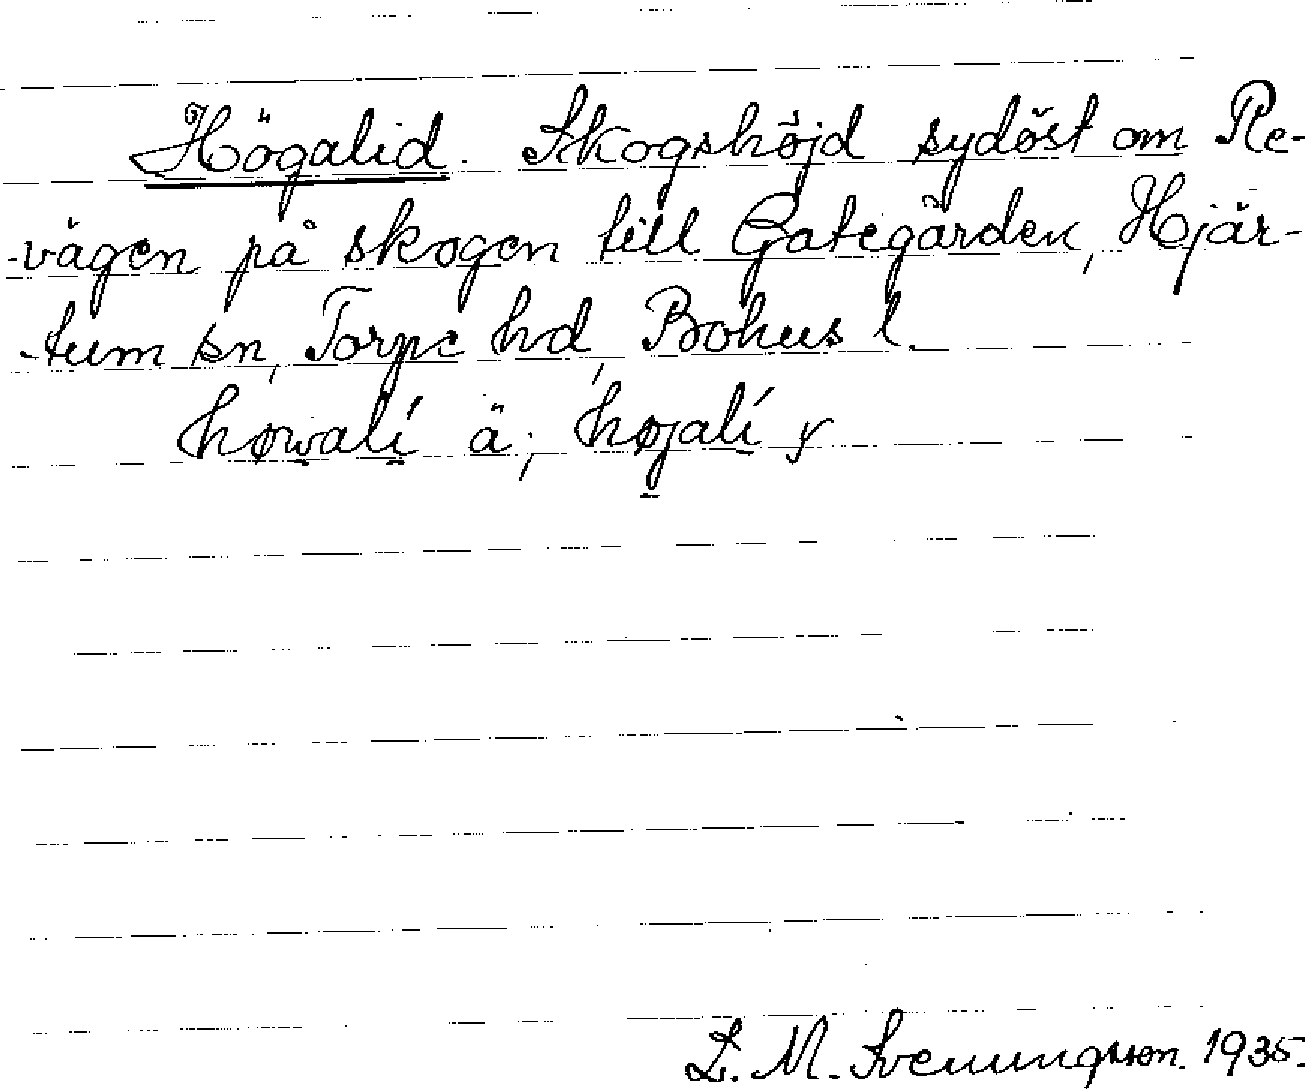 Högalid. Skogshöjd sydöst om Re-
vägen på skogen till Gategården, Hjär-
tum sn, Torpe hd, Bohus l.
høwalí ä; højalí y
L. M. Svenungsson. 1935.